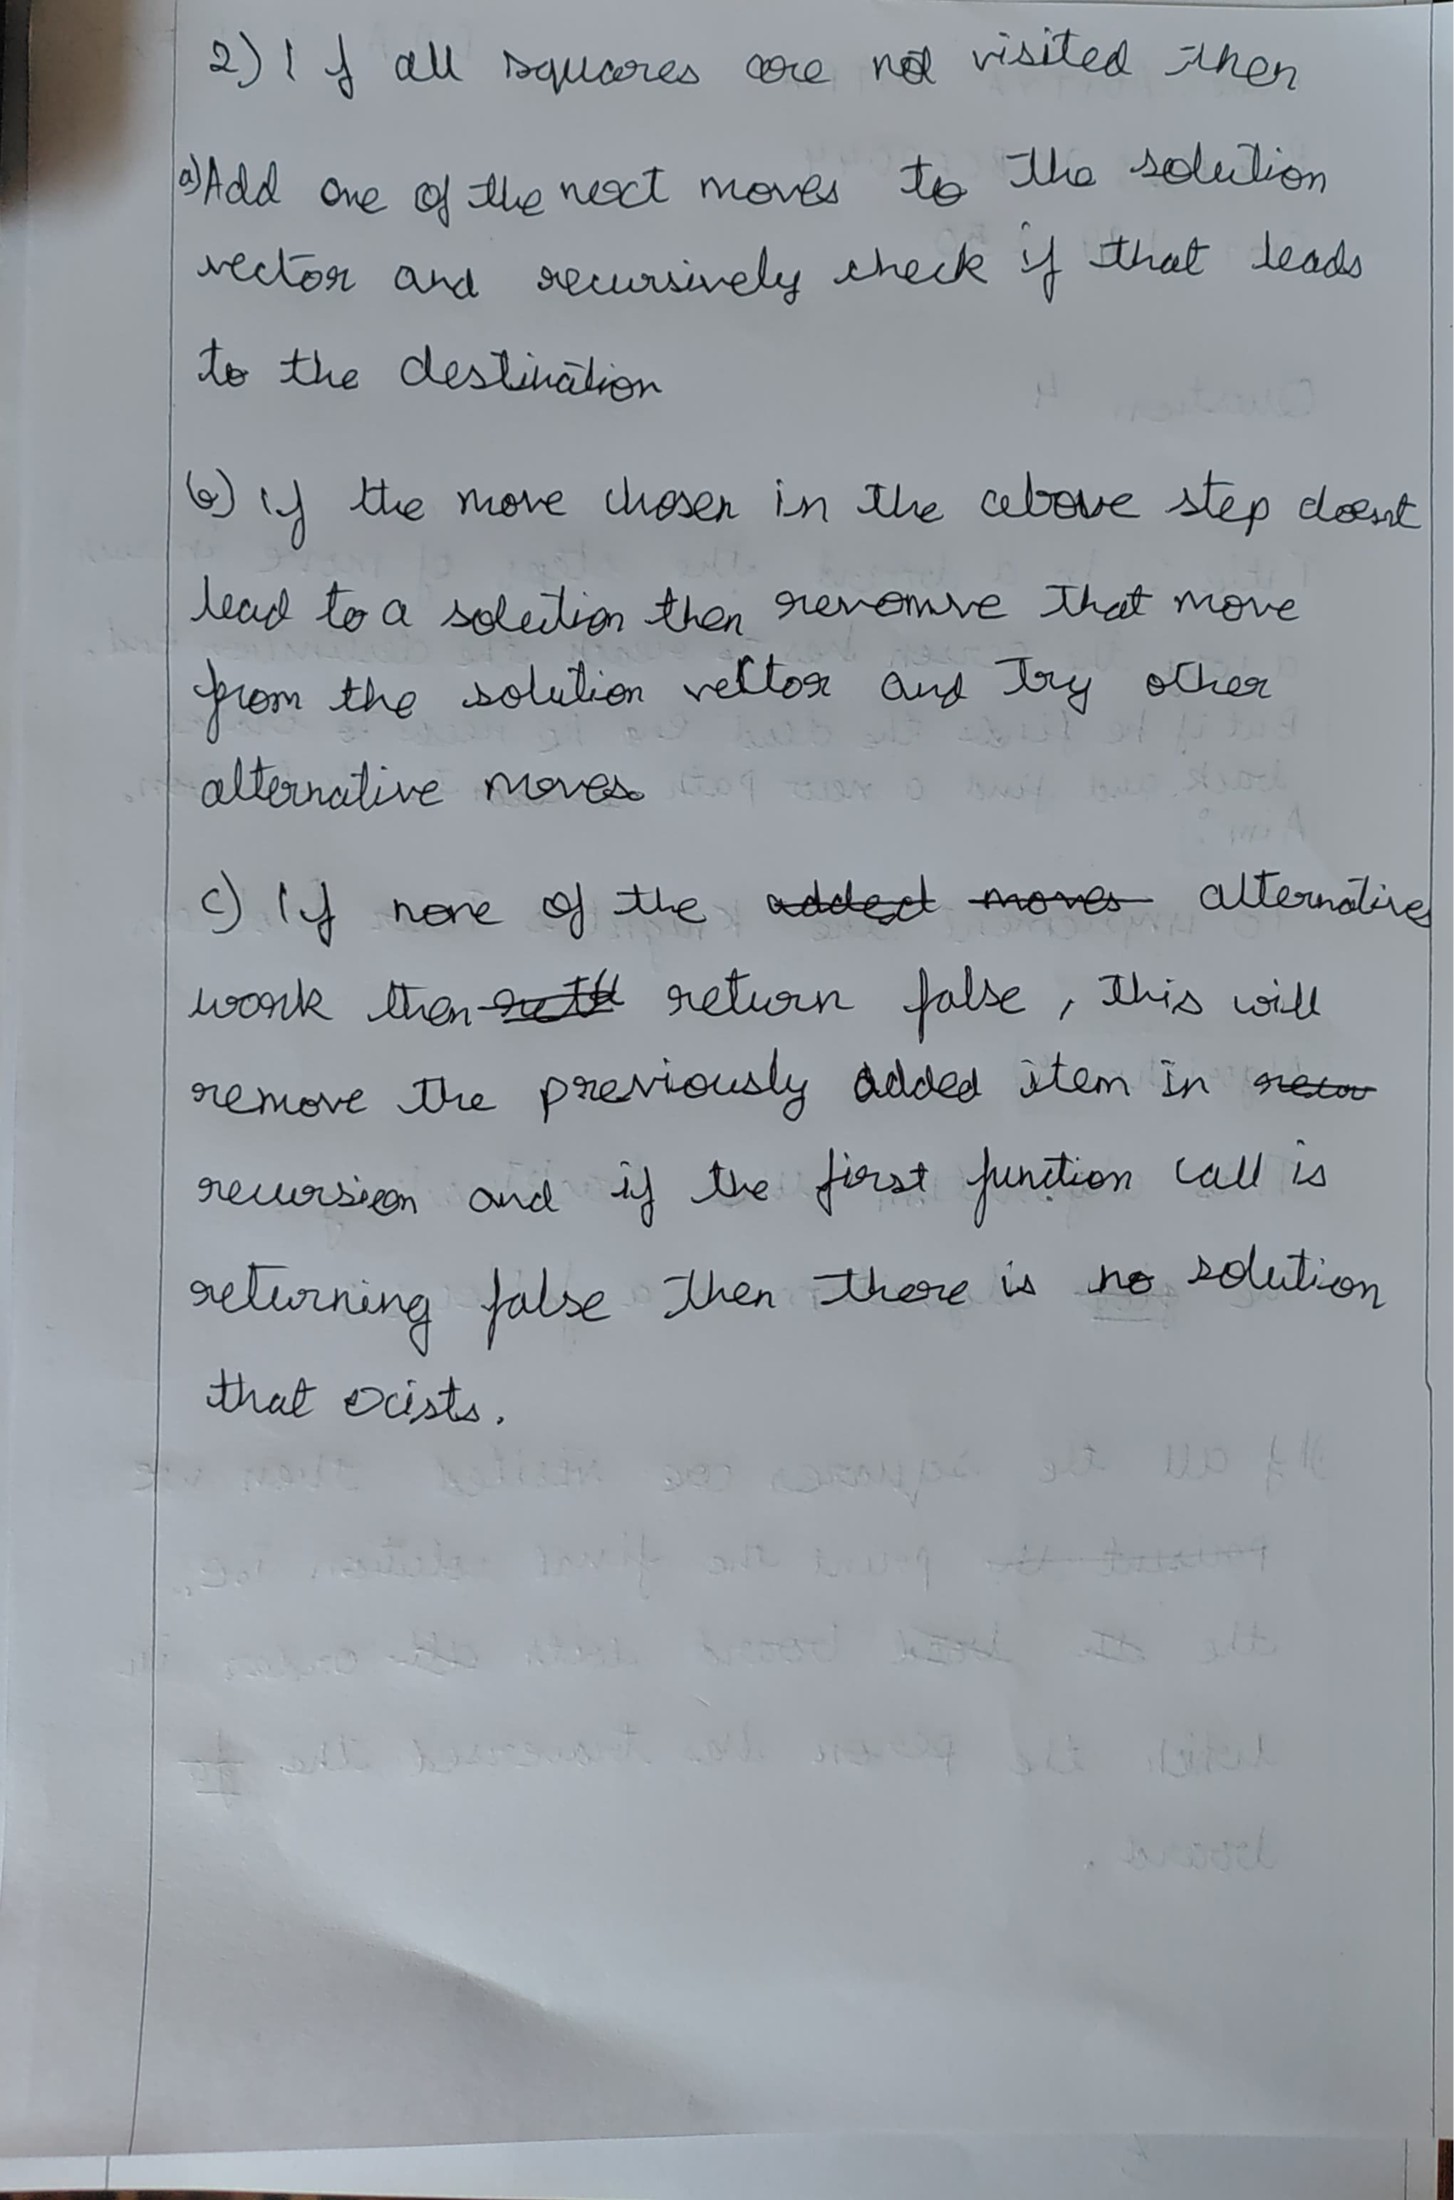 2) If all squares are not visited then
a) Add one of the next moves to the solution
vector and recursively check if that leads
to the destination
b) if the move chosen in the above step doesnt
lead to a solution then revomve that move
from the solution vector and try other
alternative moves.
c) If none of the added moves alternatives
work then return false, this will
remove the previously added item in
recursion and if the first function call is
returning false then there is no solution
that exists.